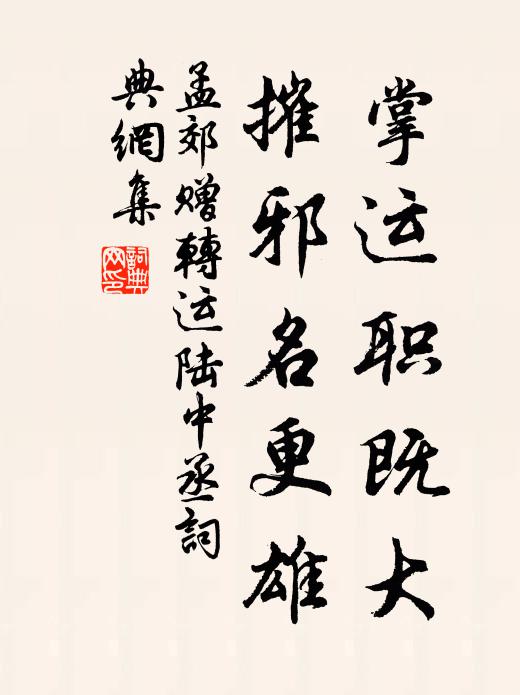 掌运职既大
摧邪名更雄
孟郊赠轉运陆中丞詞
典網集
詞典网印